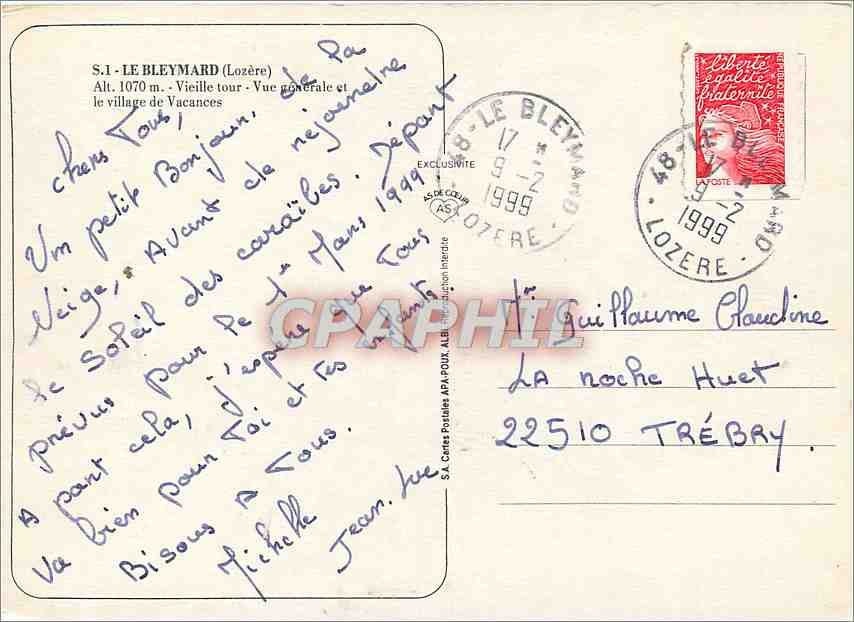 S.1 - LE BLEYMARD (Lozère)
Alt. 1070 m. - Vieille tour - Vue générale et
le village de Vacances
Chers Tous,
Un petit Bonjour, de la
Neige, Avant de réjoindre
le Soleil des caraïbes. Départ
prévus pour le 1er Mars 1999.
A part cela, j'espère que Tous
va bien pour Toi et Tes enfants.
Bisous A Tous.
Michelle
Jean-Luc
EXCLUSIVITÉ
AS DE CŒUR
AS
S.A. Cartes Postales APA-POUX, ALBI Reproduction Interdite
48 - LE BLEYMARD
17 H
9 - 2
1999
LOZERE
liberté
égalité
fraternité
RÉPUBLIQUE FRANÇAISE
LA POSTE
48 - LE BLEYMARD
17 H
9 - 2
1999
LOZERE
CPAPHIL
Guillaume Claudine
LA Roche Huet
22510 TRÉBRY.